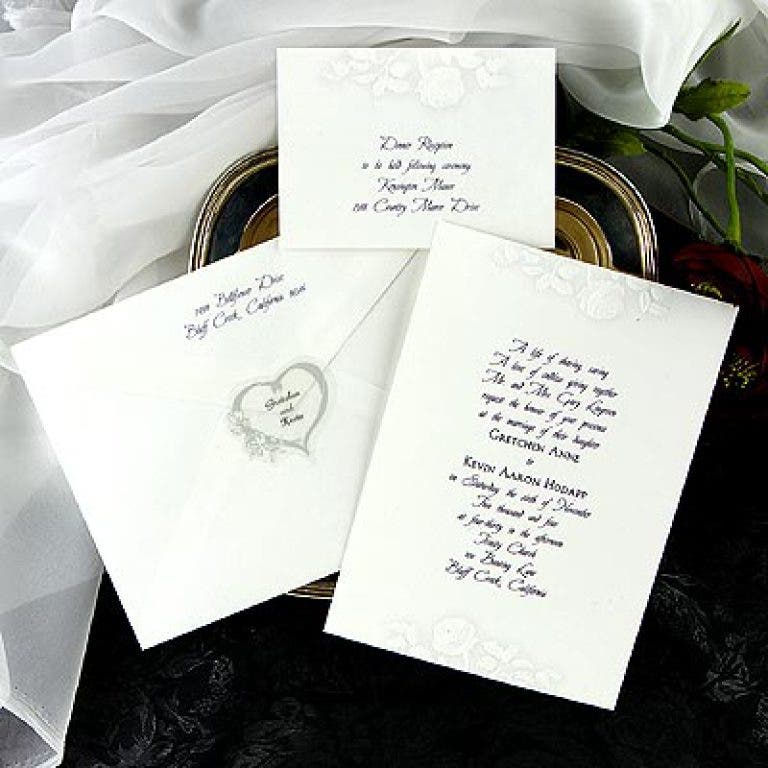 Dinner Reception
to be held following ceremony
Kensington Manor
Country Manor Drive
Bellflower Drive
Bluff Creek, California
Gretchen
and
Kevin
A life of sharing caring
A love of endless giving together
Mr. and Mrs. Gary
request the honour of your presence
at the marriage of their daughter
GRETCHEN ANNE
to
KEVIN AARON HODAPP
on Saturday, the sixth of November
Two thousand and four
at four-thirty in the afternoon
Trinity Church
Lane
Bluff Creek, California